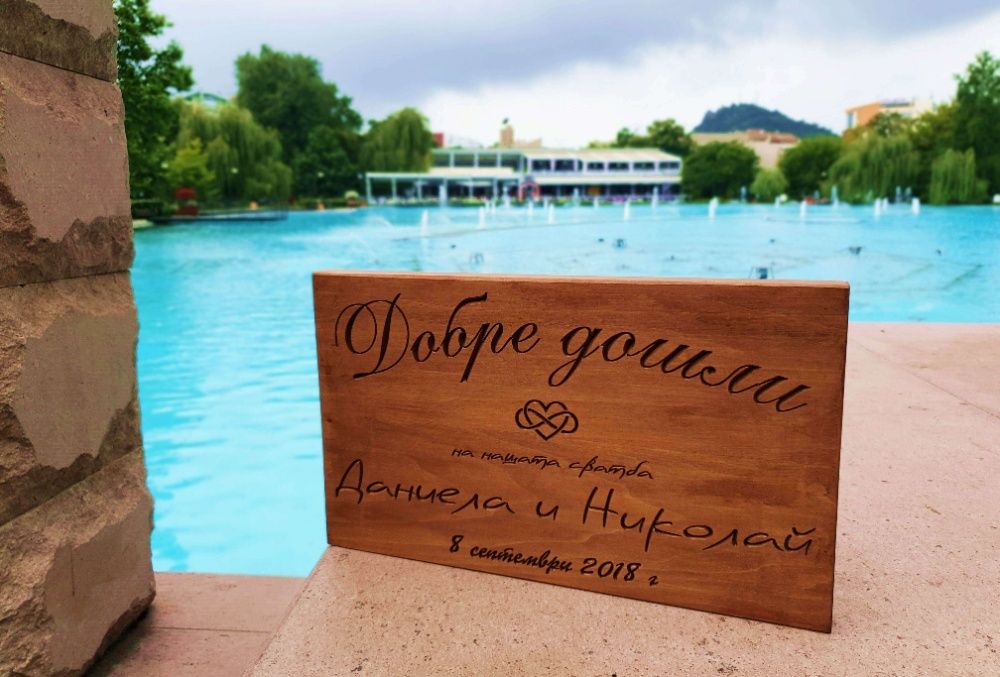 Добре дошли
на нашата сватба
Даниела и Николай
8 септември 2018 г